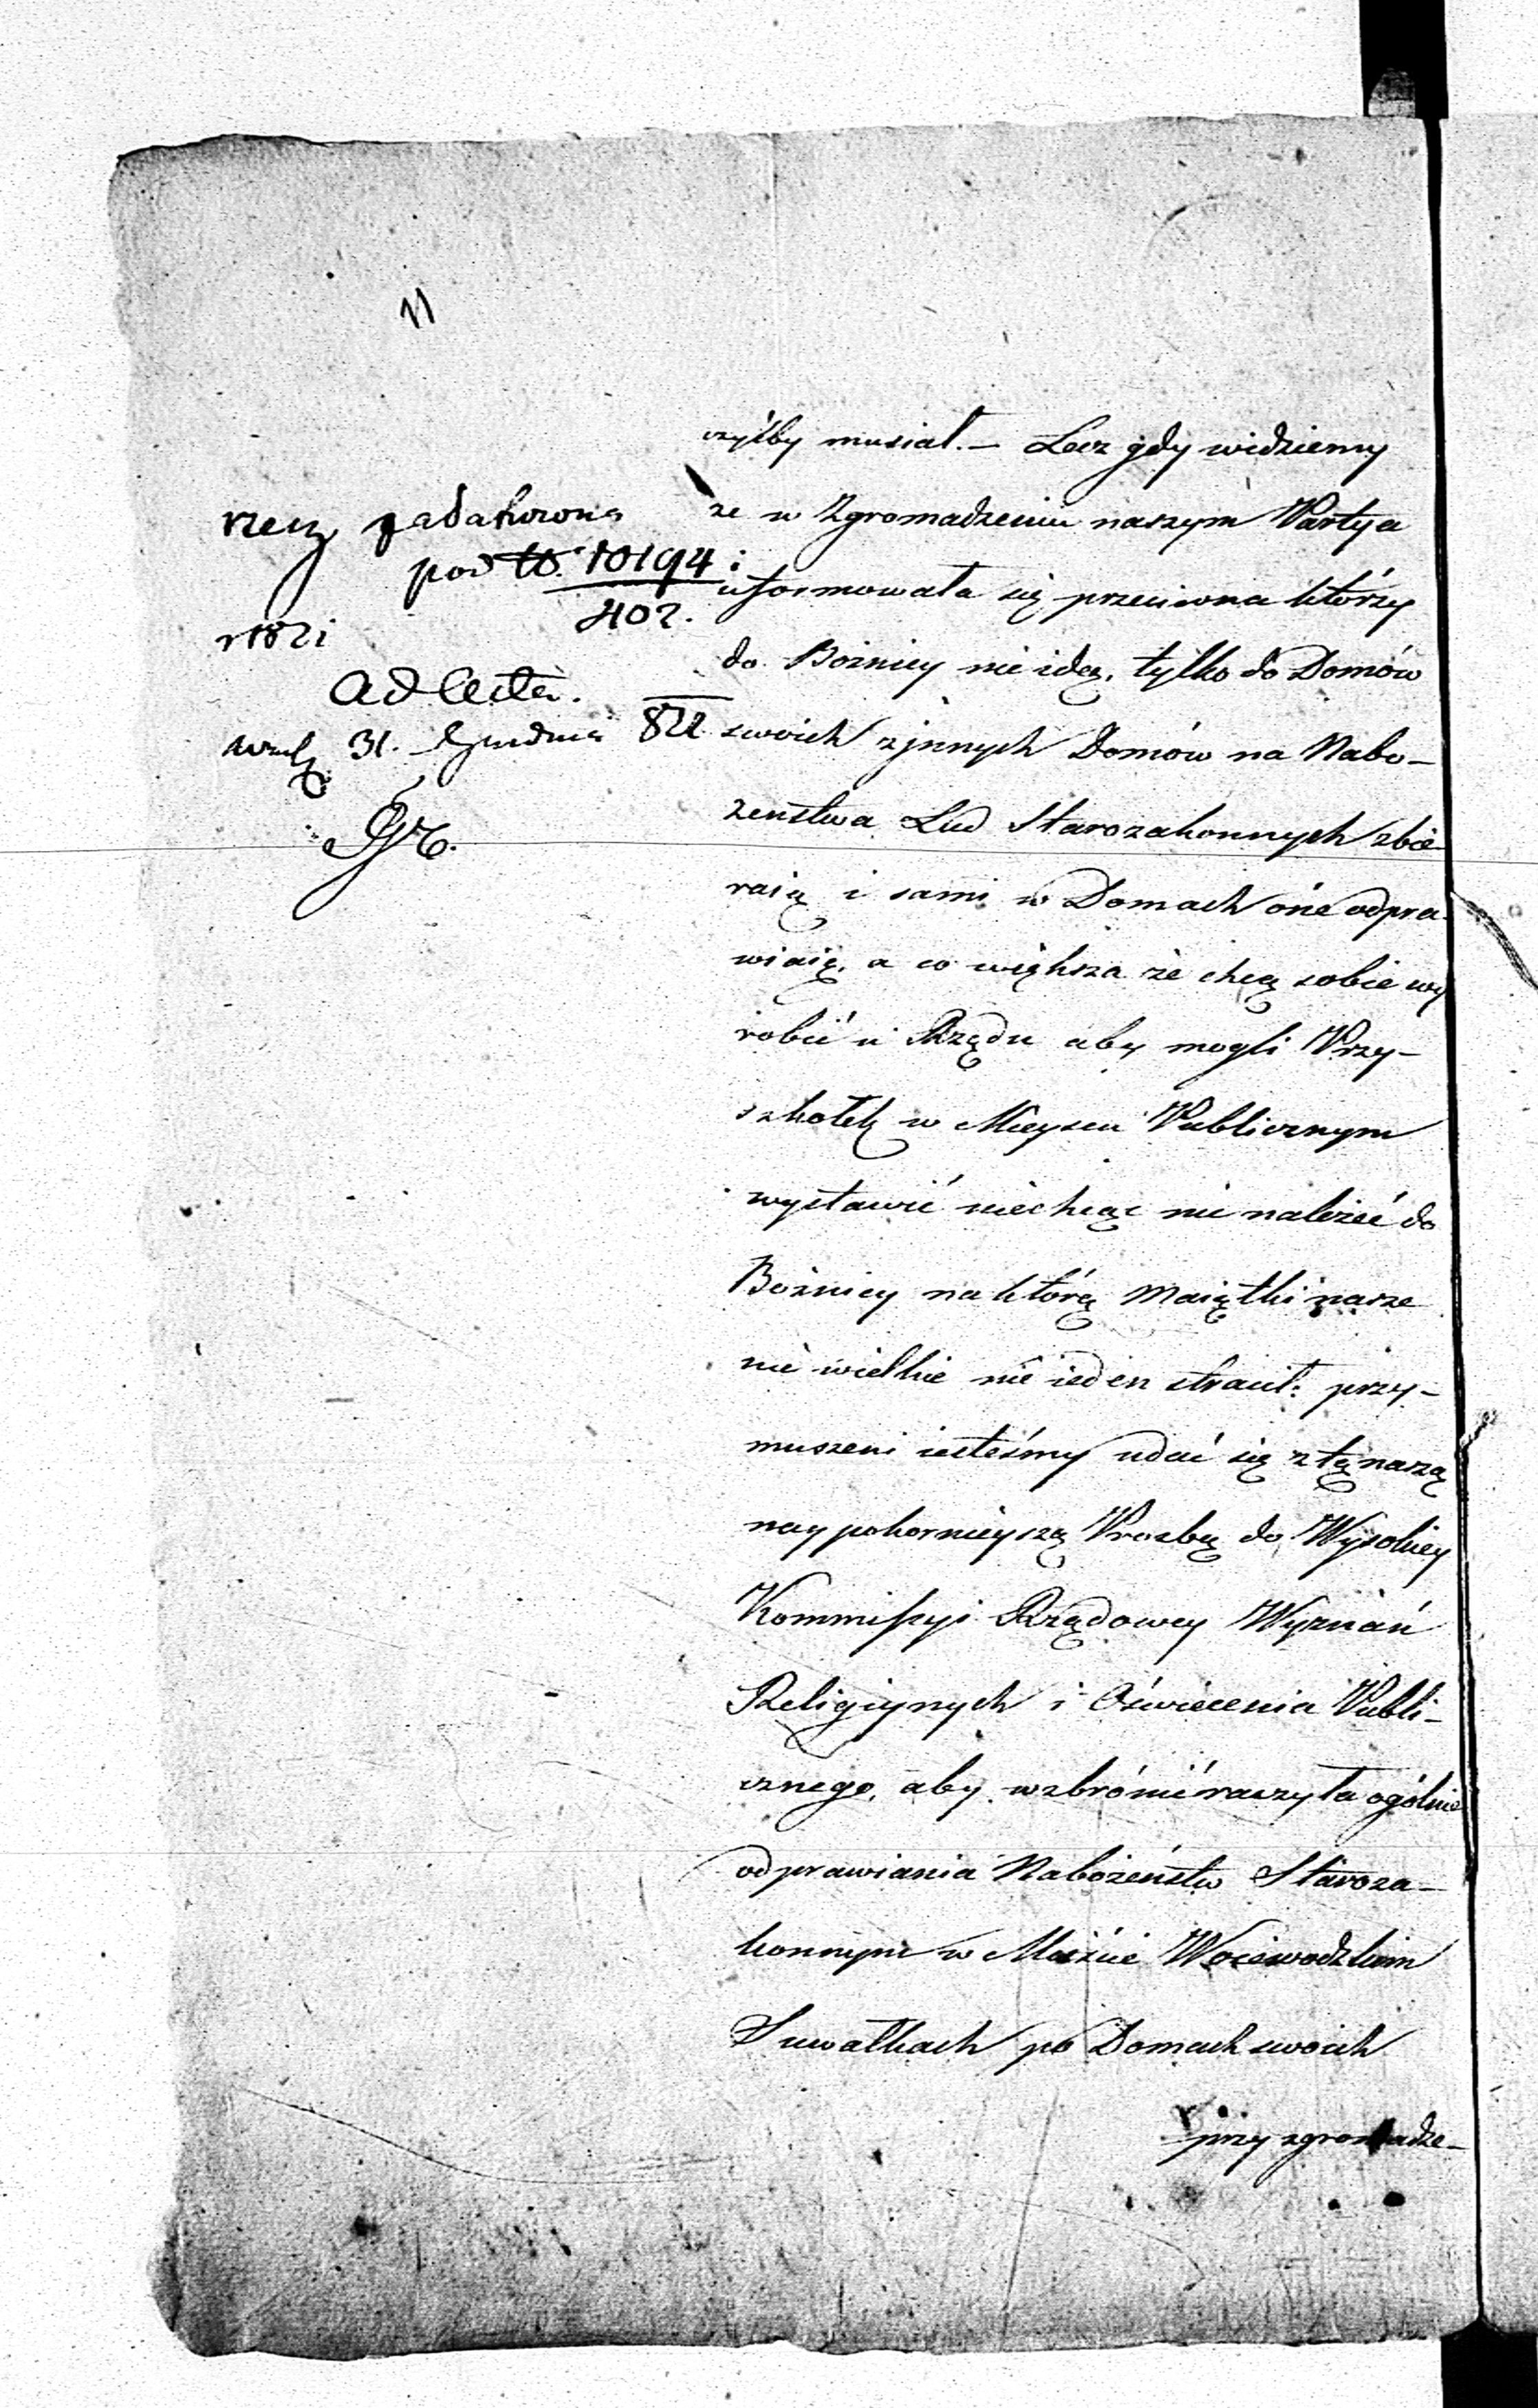 11
rzecz załatwiona
pod 10194
402.
r 1821
ad acta.
31. Grudnia 821
czyćby musiał. – Lecz gdy widziemy
ze w Zgromadzeniu naszym Partya
uformowała się przeciwna którzy
do Boznicy nie idą, tylko do Domów
swoich z jnnych Domów na Nabo-
zenstwa Lud Starozakonnych zbie-
raią i sami w Domach óne odpra-
wiaią, a co większa że chcą sobie wy
robić u Rządu aby mogli Przy-
szkołek w Mieyscu Publicznym
wystawić niechcąc nie należeć do
Bożnicy na którą Maiątki nasze
nie wielkie nie ieden stracił: przy-
muszeni iesteśmy udać się z tą naszą
naypokornieyszą Prozbą do Wysokiey
Kommissyi Rządowey Wyznań
Religiynych i Oświecenia Publi-
cznego, aby wzbrónić raczyła ogólnie
odprawiania Nabożeństw Staroza-
konnym w Mieście Woiewodzkim
Suwałkach po Domach swoich
przy zgromadze-